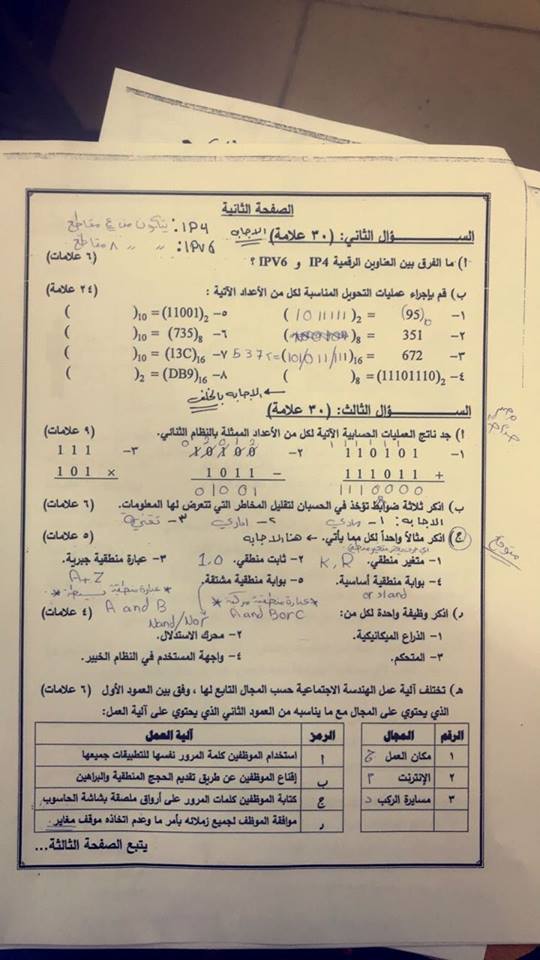 الصفحة الثانية
IP4: يتكون من ع مقاطع
الســـؤال الثاني: (٣٠ علامة) الاجابه
IPV6: " " ٨ مقاطع
أ) ما الفرق بين العناوين الرقمية IP4 و IPV6 ؟ (٦ علامات)
ب) قم بإجراء عمليات التحويل المناسبة لكل من الأعداد الآتية : (٢٤ علامة)
١– (95) = (1011111)2 ٥– (11001)2 = ( )10
٢– 351 = ( )8 ٦– (735)8 = ( )10
٣– 672 = ( )16 ٧– (13C)16 = ( )10
٤– (11101110)2 = ( )8 ٨– (DB9)16 = ( )2
← الاجابه بالخلف
الســـؤال الثالث: (٣٠ علامة)
أ) جد ناتج العمليات الحسابية الآتية لكل من الأعداد الممثلة بالنظام الثنائي. (٩ علامات)
١– 110101 ٢– 10100 ٣– 111
111011 + 1011 – 101 ×
1110000 01001
ب) اذكر ثلاثة ضوابط تؤخذ في الحسبان لتقليل المخاطر التي تتعرض لها المعلومات. (٦ علامات)
الاجابه: ١– مادي ٢– اداري ٣– تقني
ج) اذكر مثالاً واحداً لكل مما يأتي. ← هنا الاجابه (٥ علامات)
متوقع
١– متغير منطقي. K, R ٢– ثابت منطقي. 1,0 ٣– عبارة منطقية جبرية.
A+Z
٤– بوابة منطقية أساسية. ٥– بوابة منطقية مشتقة.
or او and
* عبارة منطقية مركبة * * عبارة منطقية بسيطة *
Nand/Nor A and B or C A and B
د) اذكر وظيفة واحدة لكل من: (٤ علامات)
١– الذراع الميكانيكية. ٢– محرك الاستدلال.
٣– المتحكم. ٤– واجهة المستخدم في النظام الخبير.
هـ) تختلف آلية عمل الهندسة الاجتماعية حسب المجال التابع لها ، وفق بين العمود الأول (٦ علامات)
الذي يحتوي على المجال مع ما يناسبه من العمود الثاني الذي يحتوي على آلية العمل:
الرقم المجال الرمز آلية العمل
١ مكان العمل ج أ استخدام الموظفين كلمة المرور نفسها للتطبيقات جميعها
٢ الإنترنت ب إقناع الموظفين عن طريق تقديم الحجج المنطقية والبراهين
٣ مسايرة الركب د ج كتابة الموظفين كلمات المرور على أوراق ملصقة بشاشة الحاسوب
د موافقة الموظف لجميع زملائه بأمر ما وعدم اتخاذه موقف مغاير
يتبع الصفحة الثالثة...